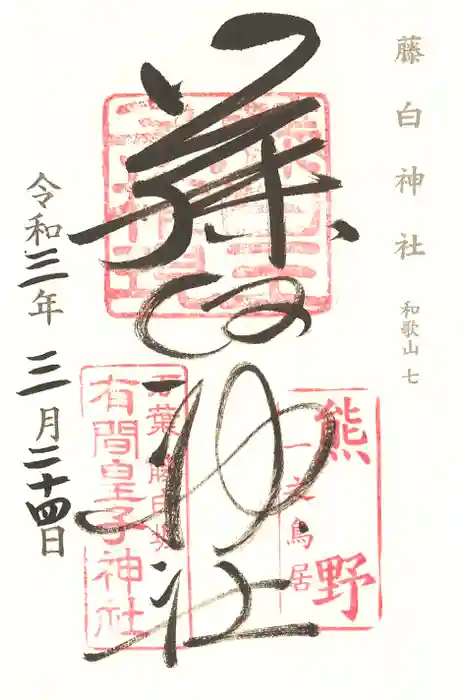 藤白神社
和歌山 七
藤白神社
熊野
一之鳥居
万葉 藤白坂
有間皇子神社
令和三年 三月二十四日